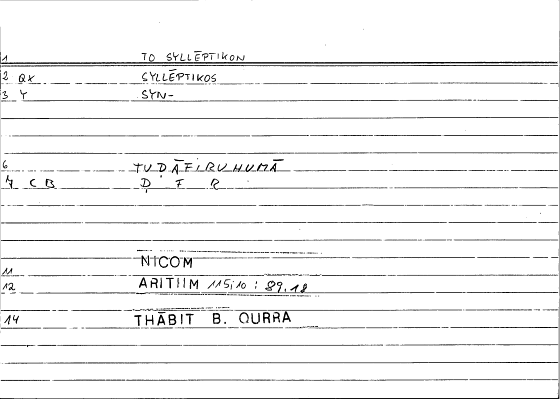 1 TO SYLLĒPTIKON
2 QX SYLLĒPTIKOS
3 Y SYN-
6 TUḌĀFIRUHUMĀ
7 CB Ḍ F R
11 NICOM
12 ARITIIM 115,10 : 89,18
14 THĀBIT B. QURRA